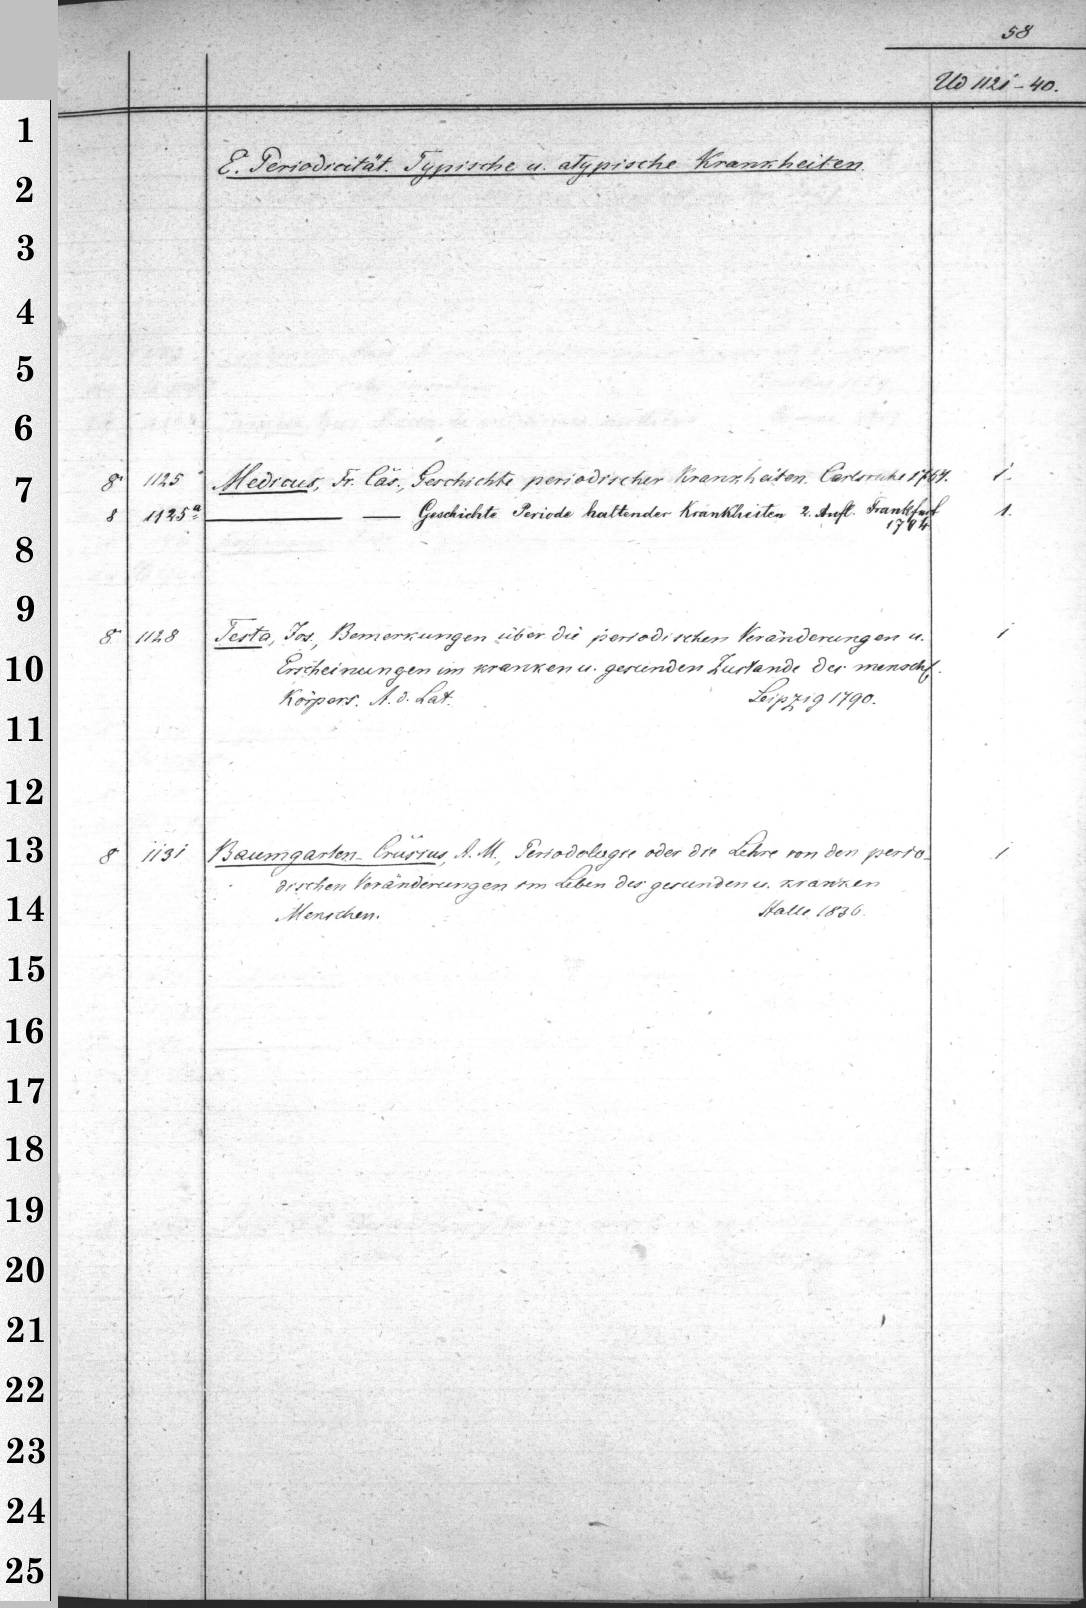 58
Ud 1121-40.
1
E. Periodicität. Typische u. atypische Krankheiten.
2
3
4
5
6
7
8° 1125 Medicus, Fr. Cäs., Geschichte periodischer Krankheiten. Carlsruhe 1764. 1.
8 1125a — — Geschichte Periode haltender Krankheiten 2. Aufl. Frankfurt 1.
1794
8
9
8° 1128 Testa, Jos., Bemerkungen über die periodischen Veränderungen u. 1
10
Erscheinungen im kranken u. gesunden Zustande des menschl.
Körpers. A. d. Lat. Leipzig 1790.
11
12
13
8° 1131 Baumgarten-Crüsius, A. M., Periodologie oder die Lehre von den perio- 1
dischen Veränderungen im Leben des gesunden u. kranken
14
Menschen. Halle 1836.
15
16
17
18
19
20
21
22
23
24
25